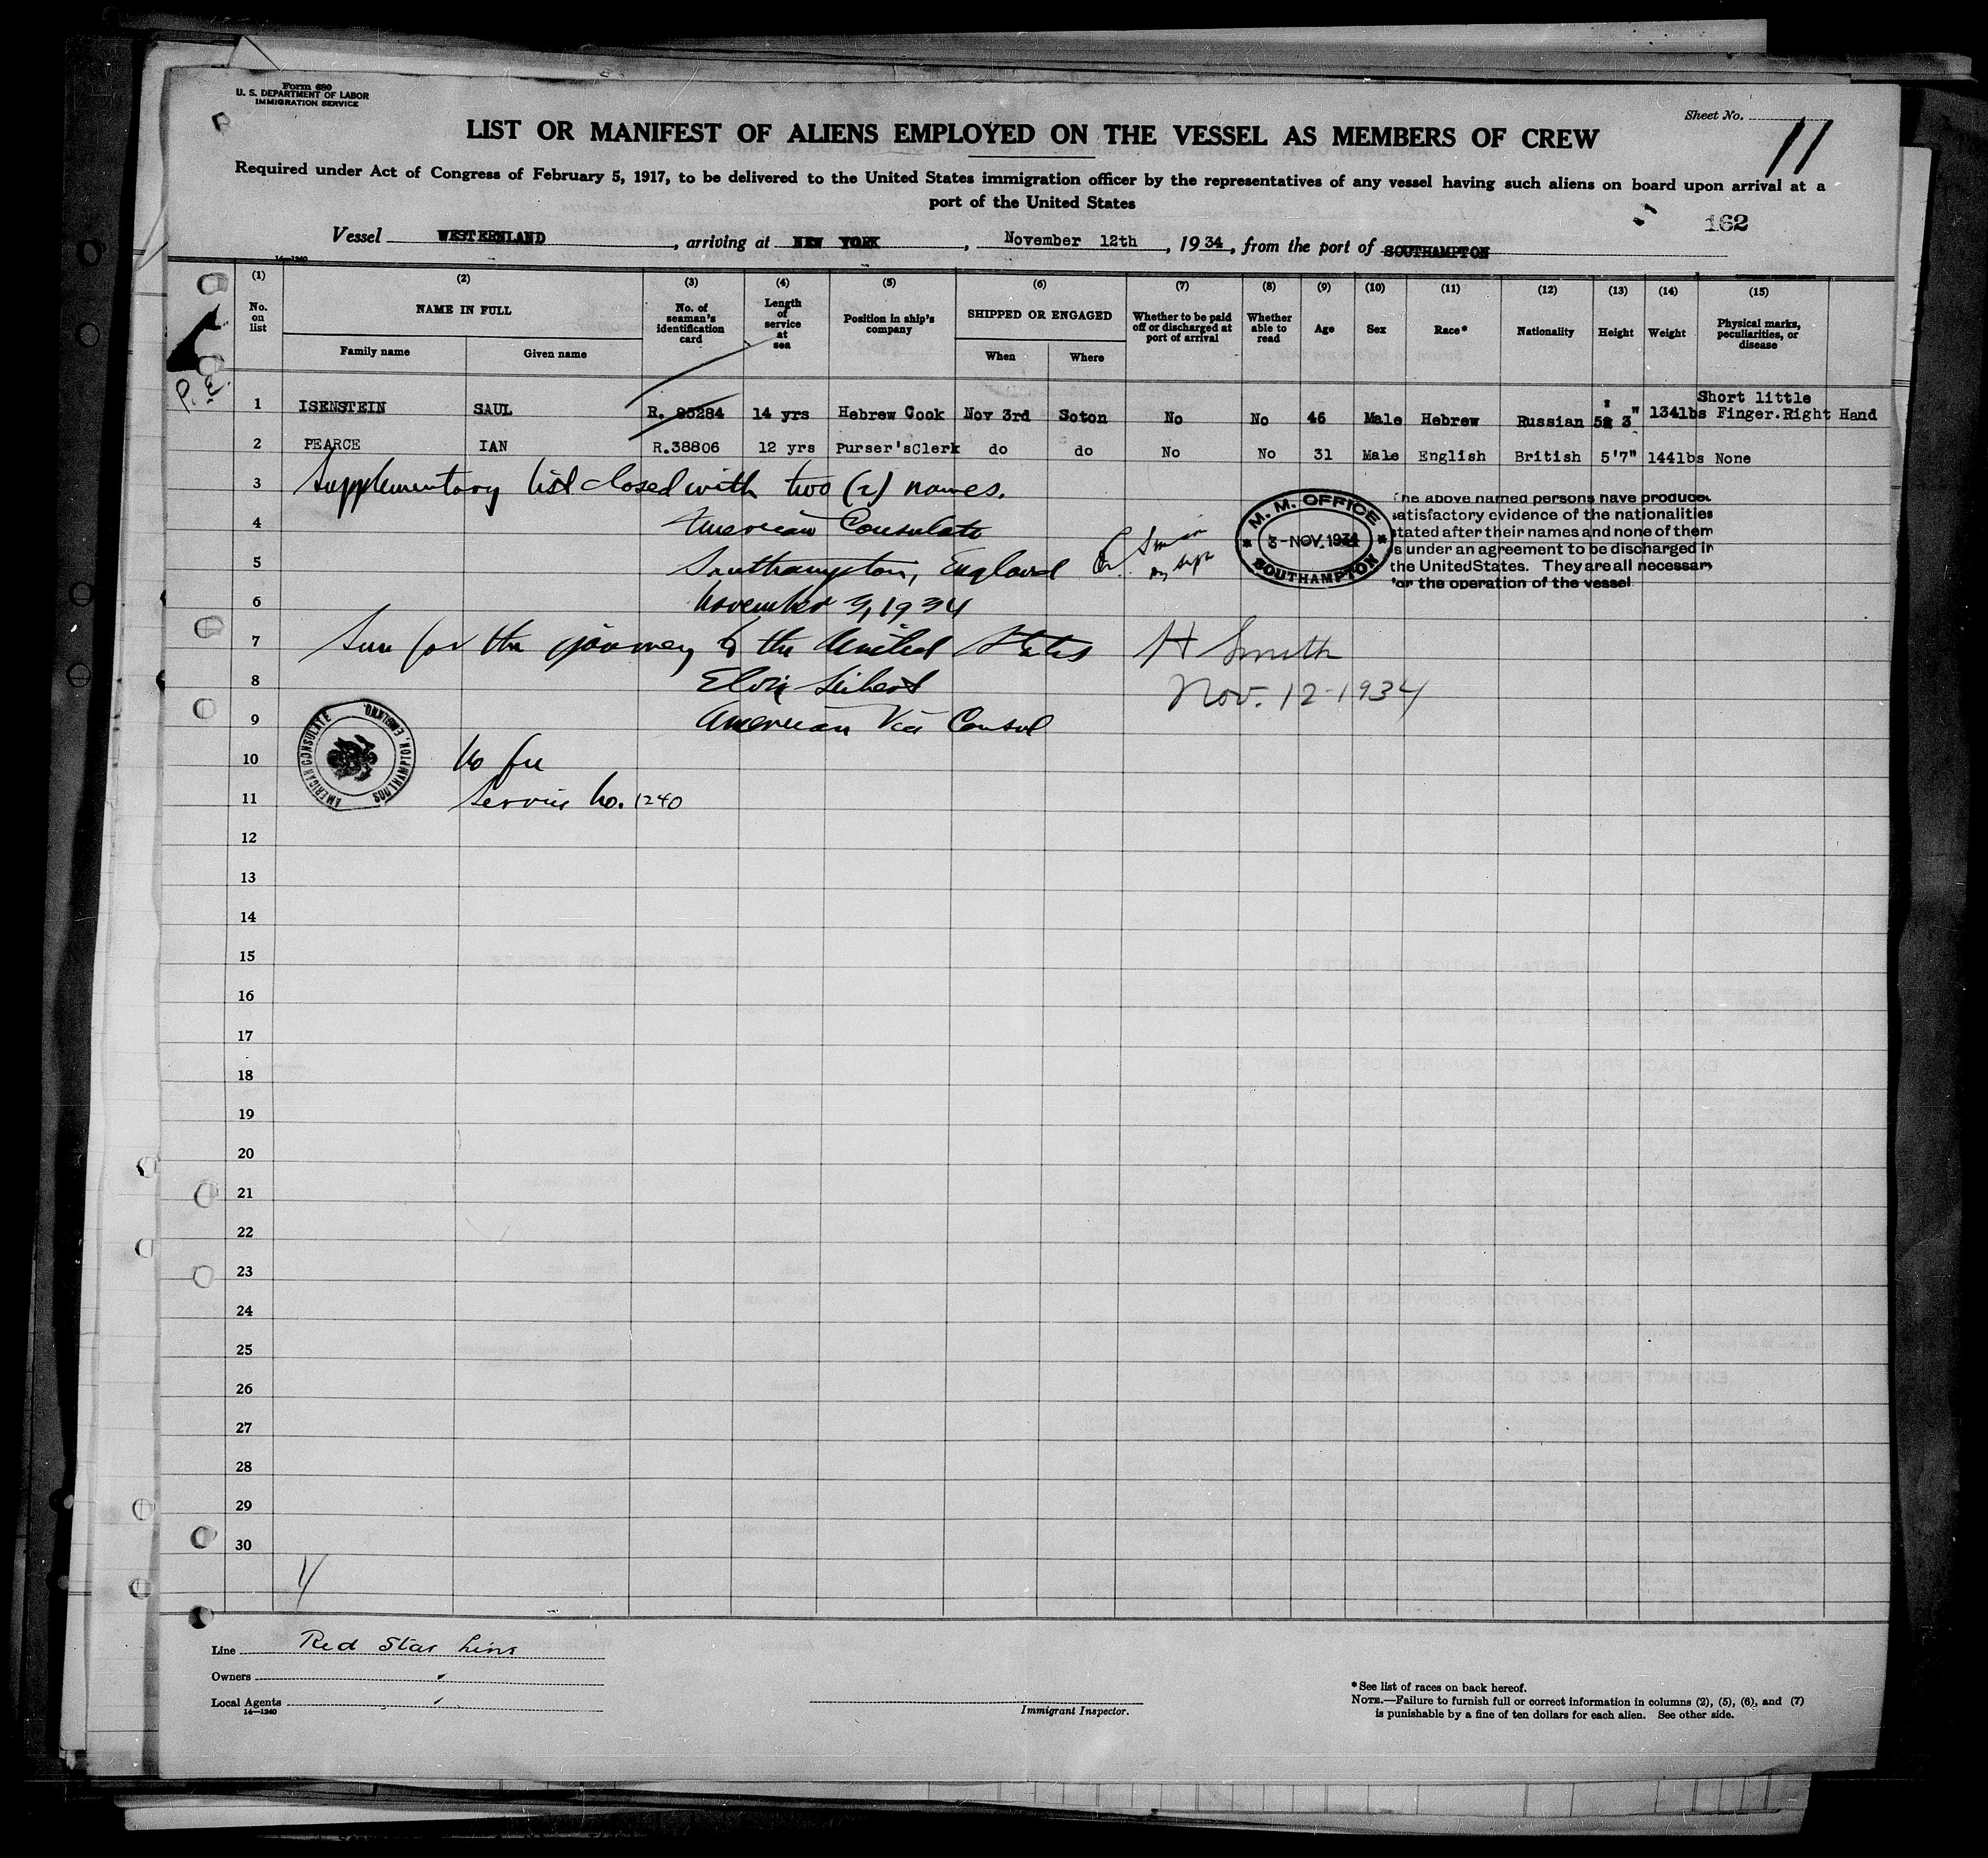 Form 680
U. S. DEPARTMENT OF LABOR
IMMIGRATION SERVICE
Sheet No. 11
LIST OR MANIFEST OF ALIENS EMPLOYED ON THE VESSEL AS MEMBERS OF CREW
Required under Act of Congress of February 5, 1917, to be delivered to the United States immigration officer by the representatives of any vessel having such aliens on board upon arrival at a
port of the United States
162
Vessel WESTERNLAND, arriving at NEW YORK, November 12th, 1934, from the port of SOUTHAMPTON
14—1240
(1) (2) (3) (4) (5) (6) (7) (8) (9) (10) (11) (12) (13) (14) (15)
No. on list NAME IN FULL Family name Given name No. of seaman's identification card Length of service at sea Position in ship's company SHIPPED OR ENGAGED When Where Whether to be paid off or discharged at port of arrival Whether able to read Age Sex Race* Nationality Height Weight Physical marks, peculiarities, or disease
P.E.
1 ISENSTEIN SAUL R. 95284 14 yrs Hebrew Cook Nov 3rd Soton No No 46 Male Hebrew Russian 5' 3" 134lbs Short little Finger.Right Hand
2 PEARCE IAN R.38806 12 yrs Purser'sClerk do do No No 31 Male English British 5'7" 144lbs None
3 Supplementary list closed with two (2) names.
4 American Consulate
5 Southampton, England
6 November 3, 1934
7 for the journey to the United States
8 Elvin Seibert
9 American Vice Consul
10 No fee
11 Service No. 1240
M. M. OFFICE
3-NOV.1934
SOUTHAMPTON
The above named persons have produced
satisfactory evidence of the nationalities
stated after their names and none of them
is under an agreement to be discharged in
the United States. They are all necessary
for the operation of the vessel
H Smith
Nov. 12-1934
AMERICAN CONSULATE
SOUTHAMPTON, ENGLAND.
12
13
14
15
16
17
18
19
20
21
22
23
24
25
26
27
28
29
30
Line Red Star Line
Owners "
Local Agents "
14—1240
Immigrant Inspector.
*See list of races on back hereof.
NOTE.—Failure to furnish full or correct information in columns (2), (5), (6), and (7)
is punishable by a fine of ten dollars for each alien. See other side.